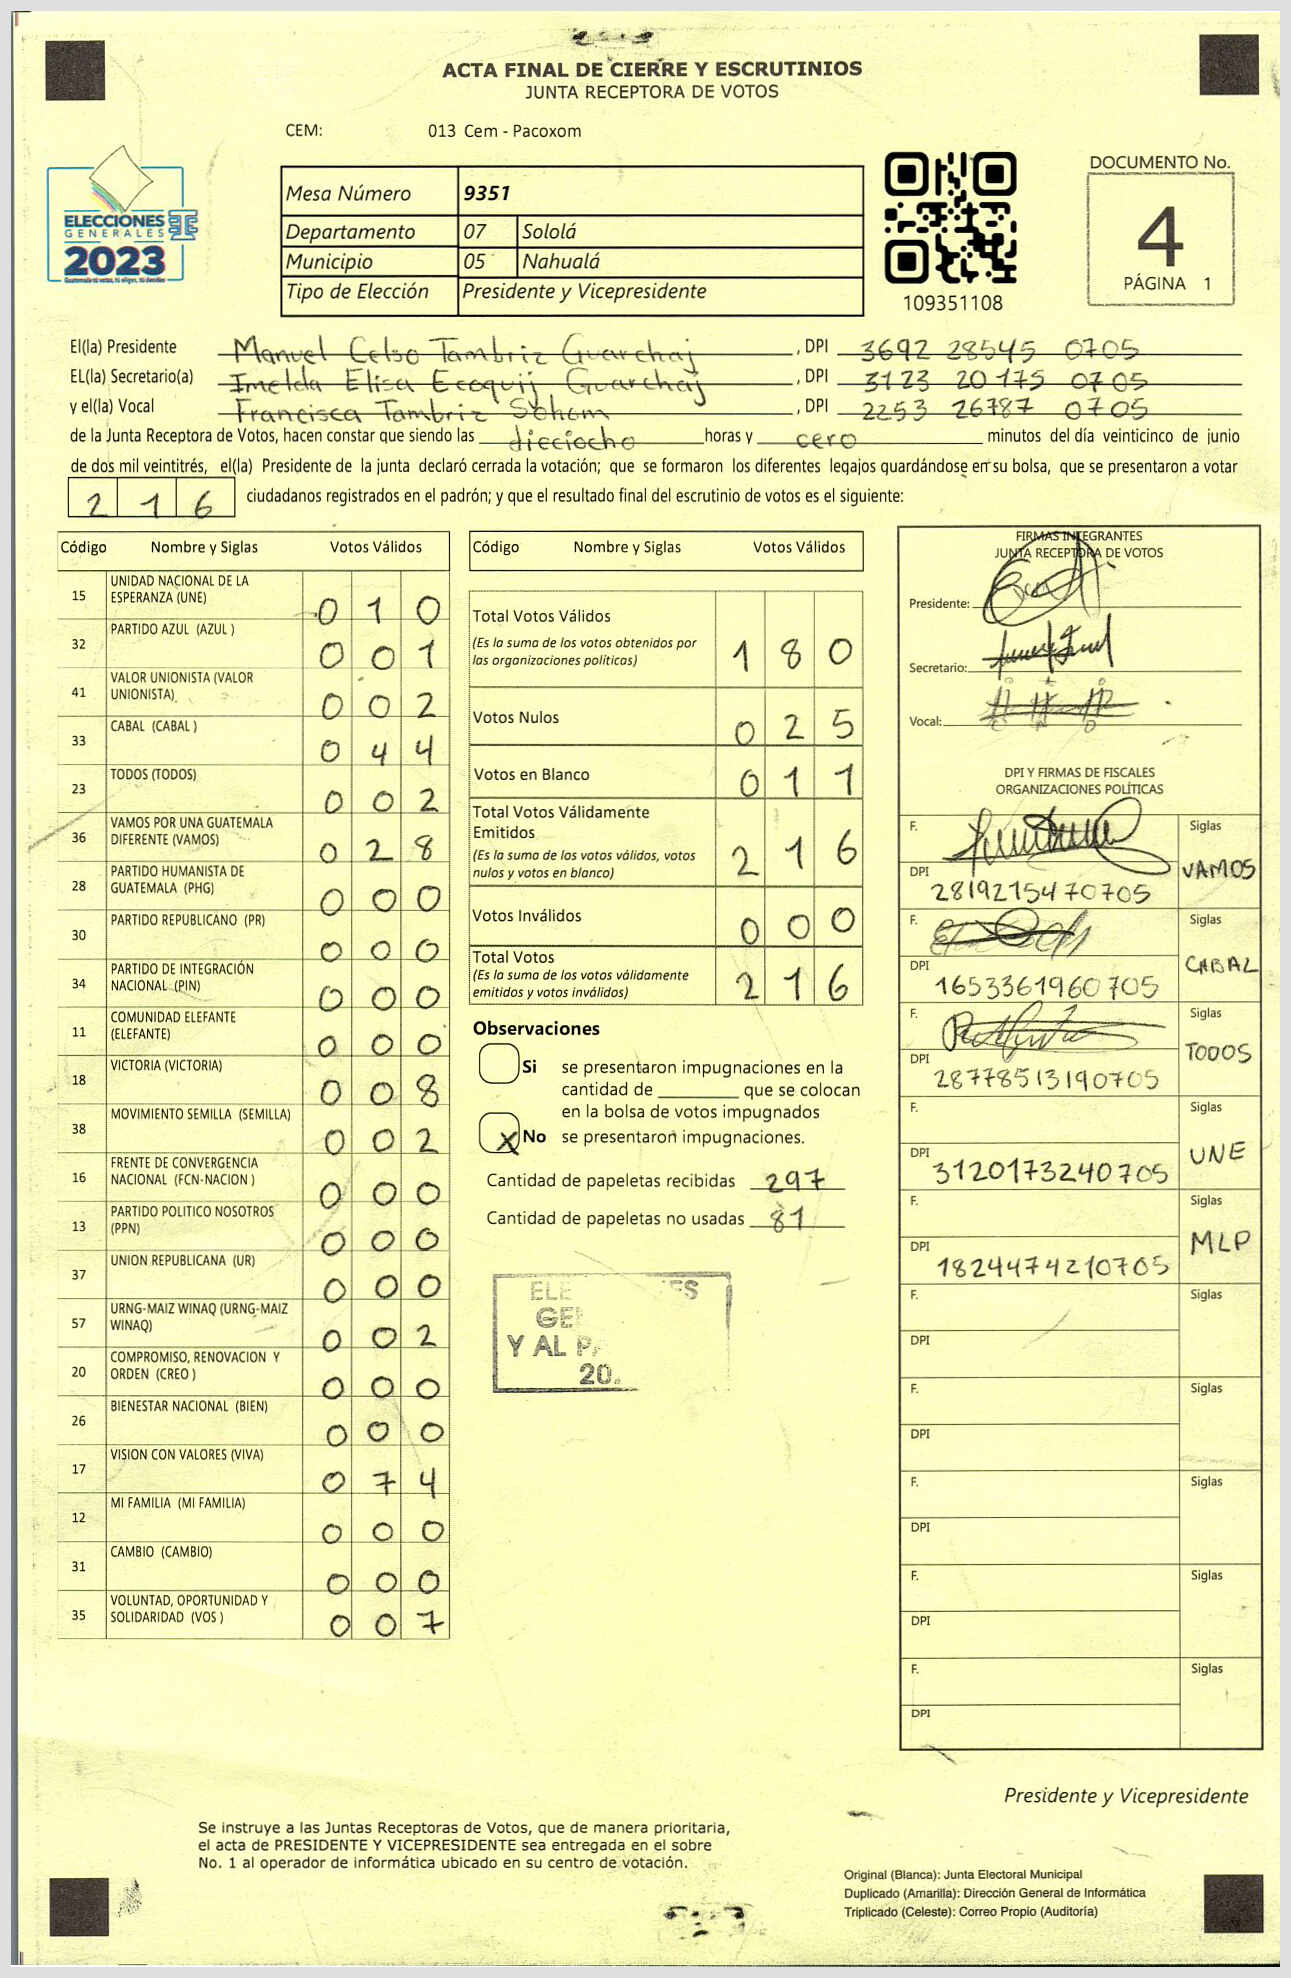 ACTA FINAL DE CIERRE Y ESCRUTINIOS
JUNTA RECEPTORA DE VOTOS
CEM: 013 Cem - Pacoxom
ELECCIONES
GENERALES
2023
Guatemala tú votas, tú eliges, tú decides
Mesa Número 9351
Departamento 07 Sololá
Municipio 05 Nahualá
Tipo de Elección Presidente y Vicepresidente
109351108
DOCUMENTO No.
4
PÁGINA 1
El(la) Presidente Manuel Celso Tambriz Guarchaj, DPI 3692 28545 0705
EL(la) Secretario(a) Imelda Elisa Ecoquij Guarchaj, DPI 3123 20175 0705
y el(la) Vocal Francisca Tambriz Sohom, DPI 2253 26787 0705
de la Junta Receptora de Votos, hacen constar que siendo las dieciocho horas y cero minutos del día veinticinco de junio
de dos mil veintitrés, el(la) Presidente de la junta declaró cerrada la votación; que se formaron los diferentes legajos guardándose en su bolsa, que se presentaron a votar
216 ciudadanos registrados en el padrón; y que el resultado final del escrutinio de votos es el siguiente:
Código Nombre y Siglas Votos Válidos
15 UNIDAD NACIONAL DE LA ESPERANZA (UNE) 010
32 PARTIDO AZUL (AZUL ) 001
41 VALOR UNIONISTA (VALOR UNIONISTA) 002
33 CABAL (CABAL ) 044
23 TODOS (TODOS) 002
36 VAMOS POR UNA GUATEMALA DIFERENTE (VAMOS) 028
28 PARTIDO HUMANISTA DE GUATEMALA (PHG) 000
30 PARTIDO REPUBLICANO (PR) 000
34 PARTIDO DE INTEGRACIÓN NACIONAL (PIN) 000
11 COMUNIDAD ELEFANTE (ELEFANTE) 000
18 VICTORIA (VICTORIA) 008
38 MOVIMIENTO SEMILLA (SEMILLA) 002
16 FRENTE DE CONVERGENCIA NACIONAL (FCN-NACION ) 000
13 PARTIDO POLITICO NOSOTROS (PPN) 000
37 UNION REPUBLICANA (UR) 000
57 URNG-MAIZ WINAQ (URNG-MAIZ WINAQ) 002
20 COMPROMISO, RENOVACION Y ORDEN (CREO ) 000
26 BIENESTAR NACIONAL (BIEN) 000
17 VISION CON VALORES (VIVA) 074
12 MI FAMILIA (MI FAMILIA) 000
31 CAMBIO (CAMBIO) 000
35 VOLUNTAD, OPORTUNIDAD Y SOLIDARIDAD (VOS ) 007
Código Nombre y Siglas Votos Válidos
Total Votos Válidos 180
(Es la suma de los votos obtenidos por
las organizaciones políticas)
Votos Nulos 025
Votos en Blanco 011
Total Votos Válidamente
Emitidos 216
(Es la suma de los votos válidos, votos
nulos y votos en blanco)
Votos Inválidos 000
Total Votos 216
(Es la suma de los votos válidamente
emitidos y votos inválidos)
Observaciones
Si se presentaron impugnaciones en la
cantidad de ________ que se colocan
en la bolsa de votos impugnados
X No se presentaron impugnaciones.
Cantidad de papeletas recibidas 297
Cantidad de papeletas no usadas 81
Y AL
FIRMAS INTEGRANTES
JUNTA RECEPTORA DE VOTOS
Presidente:
Secretario:
Vocal:
DPI Y FIRMAS DE FISCALES
ORGANIZACIONES POLÍTICAS
F. Siglas VAMOS
DPI 2819215470705
F. Siglas CABAL
DPI 1653361960705
F. Siglas TODOS
DPI 28778513190705
F. Siglas UNE
DPI 3120173240705
F. Siglas MLP
DPI 1824474210705
F. Siglas
DPI
F. Siglas
DPI
F. Siglas
DPI
F. Siglas
DPI
F. Siglas
DPI
Presidente y Vicepresidente
Se instruye a las Juntas Receptoras de Votos, que de manera prioritaria,
el acta de PRESIDENTE Y VICEPRESIDENTE sea entregada en el sobre
No. 1 al operador de informática ubicado en su centro de votación.
Original (Blanca): Junta Electoral Municipal
Duplicado (Amarilla): Dirección General de Informática
Triplicado (Celeste): Correo Propio (Auditoría)